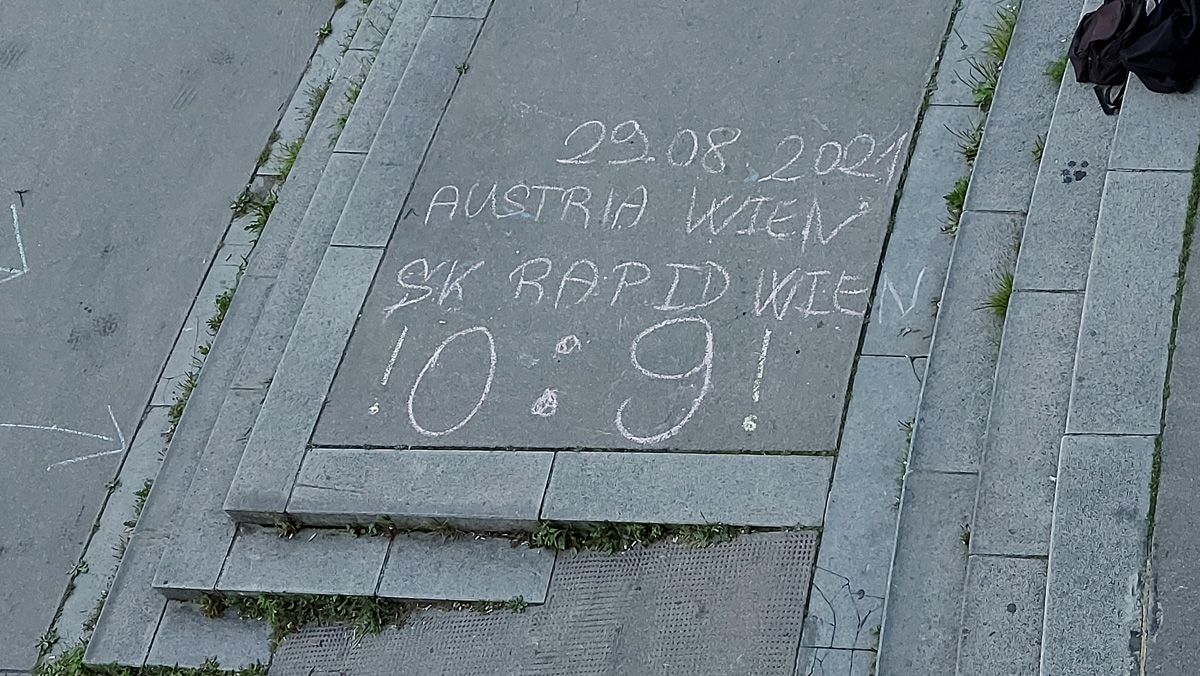 29.08.2021
AUSTRIA WIEN
SK RAPID WIEN
!0:9!